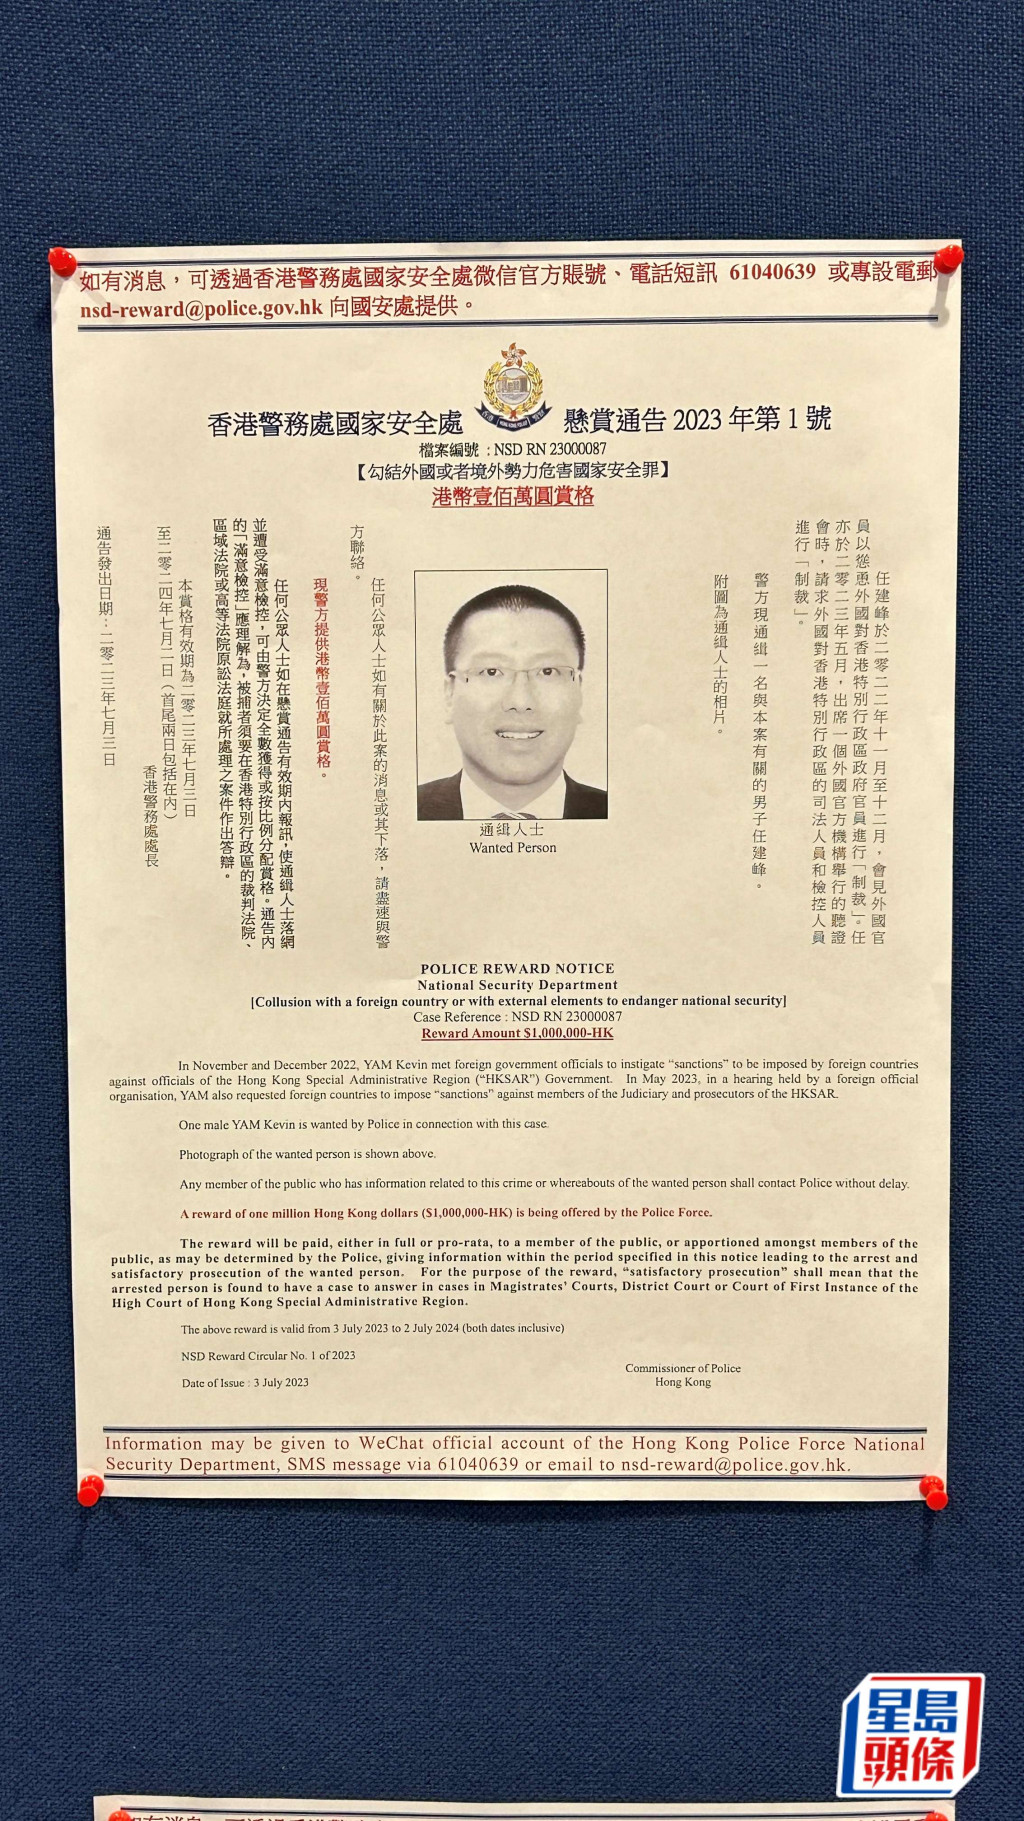 如有消息，可透過香港警務處國家安全處微信官方賬號、電話短訊 61040639 或專設電郵
nsd-reward@police.gov.hk 向國安處提供。
香港警務處國家安全處 懸賞通告 2023 年第 1 號
檔案編號 : NSD RN 23000087
【勾結外國或者境外勢力危害國家安全罪】
港幣壹佰萬圓賞格
任建峰於二零二二年十一月至十二月，會見外國官
員以慫恿外國對香港特別行政區政府官員進行「制裁」。任
亦於二零二三年五月，出席一個外國官方機構舉行的聽證
會時，請求外國對香港特別行政區的司法人員和檢控人員
進行「制裁」。
警方現通緝一名與本案有關的男子任建峰。
附圖為通緝人士的相片。
通緝人士
Wanted Person
任何公眾人士如有關於此案的消息或其下落，請盡速與警
方聯絡。
現警方提供港幣壹佰萬圓賞格。
任何公眾人士如在懸賞通告有效期內報訊，使通緝人士落網
並遭受滿意檢控，可由警方決定全數獲得或按比例分配賞格。通告內
的「滿意檢控」應理解為，被捕者須要在香港特別行政區的裁判法院、
區域法院或高等法院原訟法庭就所處理之案件作出答辯。
本賞格有效期為二零二三年七月三日
至二零二四年七月二日（首尾兩日包括在內）
香港警務處處長
通告發出日期：二零二三年七月三日
POLICE REWARD NOTICE
National Security Department
[Collusion with a foreign country or with external elements to endanger national security]
Case Reference : NSD RN 23000087
Reward Amount $1,000,000-HK
In November and December 2022, YAM Kevin met foreign government officials to instigate “sanctions” to be imposed by foreign countries
against officials of the Hong Kong Special Administrative Region (“HKSAR”) Government. In May 2023, in a hearing held by a foreign official
organisation, YAM also requested foreign countries to impose “sanctions” against members of the Judiciary and prosecutors of the HKSAR.
One male YAM Kevin is wanted by Police in connection with this case.
Photograph of the wanted person is shown above.
Any member of the public who has information related to this crime or whereabouts of the wanted person shall contact Police without delay.
A reward of one million Hong Kong dollars ($1,000,000-HK) is being offered by the Police Force.
The reward will be paid, either in full or pro-rata, to a member of the public, or apportioned amongst members of the
public, as may be determined by the Police, giving information within the period specified in this notice leading to the arrest and
satisfactory prosecution of the wanted person. For the purpose of the reward, “satisfactory prosecution” shall mean that the
arrested person is found to have a case to answer in cases in Magistrates’ Courts, District Court or Court of First Instance of the
High Court of Hong Kong Special Administrative Region.
The above reward is valid from 3 July 2023 to 2 July 2024 (both dates inclusive)
NSD Reward Circular No. 1 of 2023
Commissioner of Police
Date of Issue : 3 July 2023
Hong Kong
Information may be given to WeChat official account of the Hong Kong Police Force National
Security Department, SMS message via 61040639 or email to nsd-reward@police.gov.hk.
星島
頭條